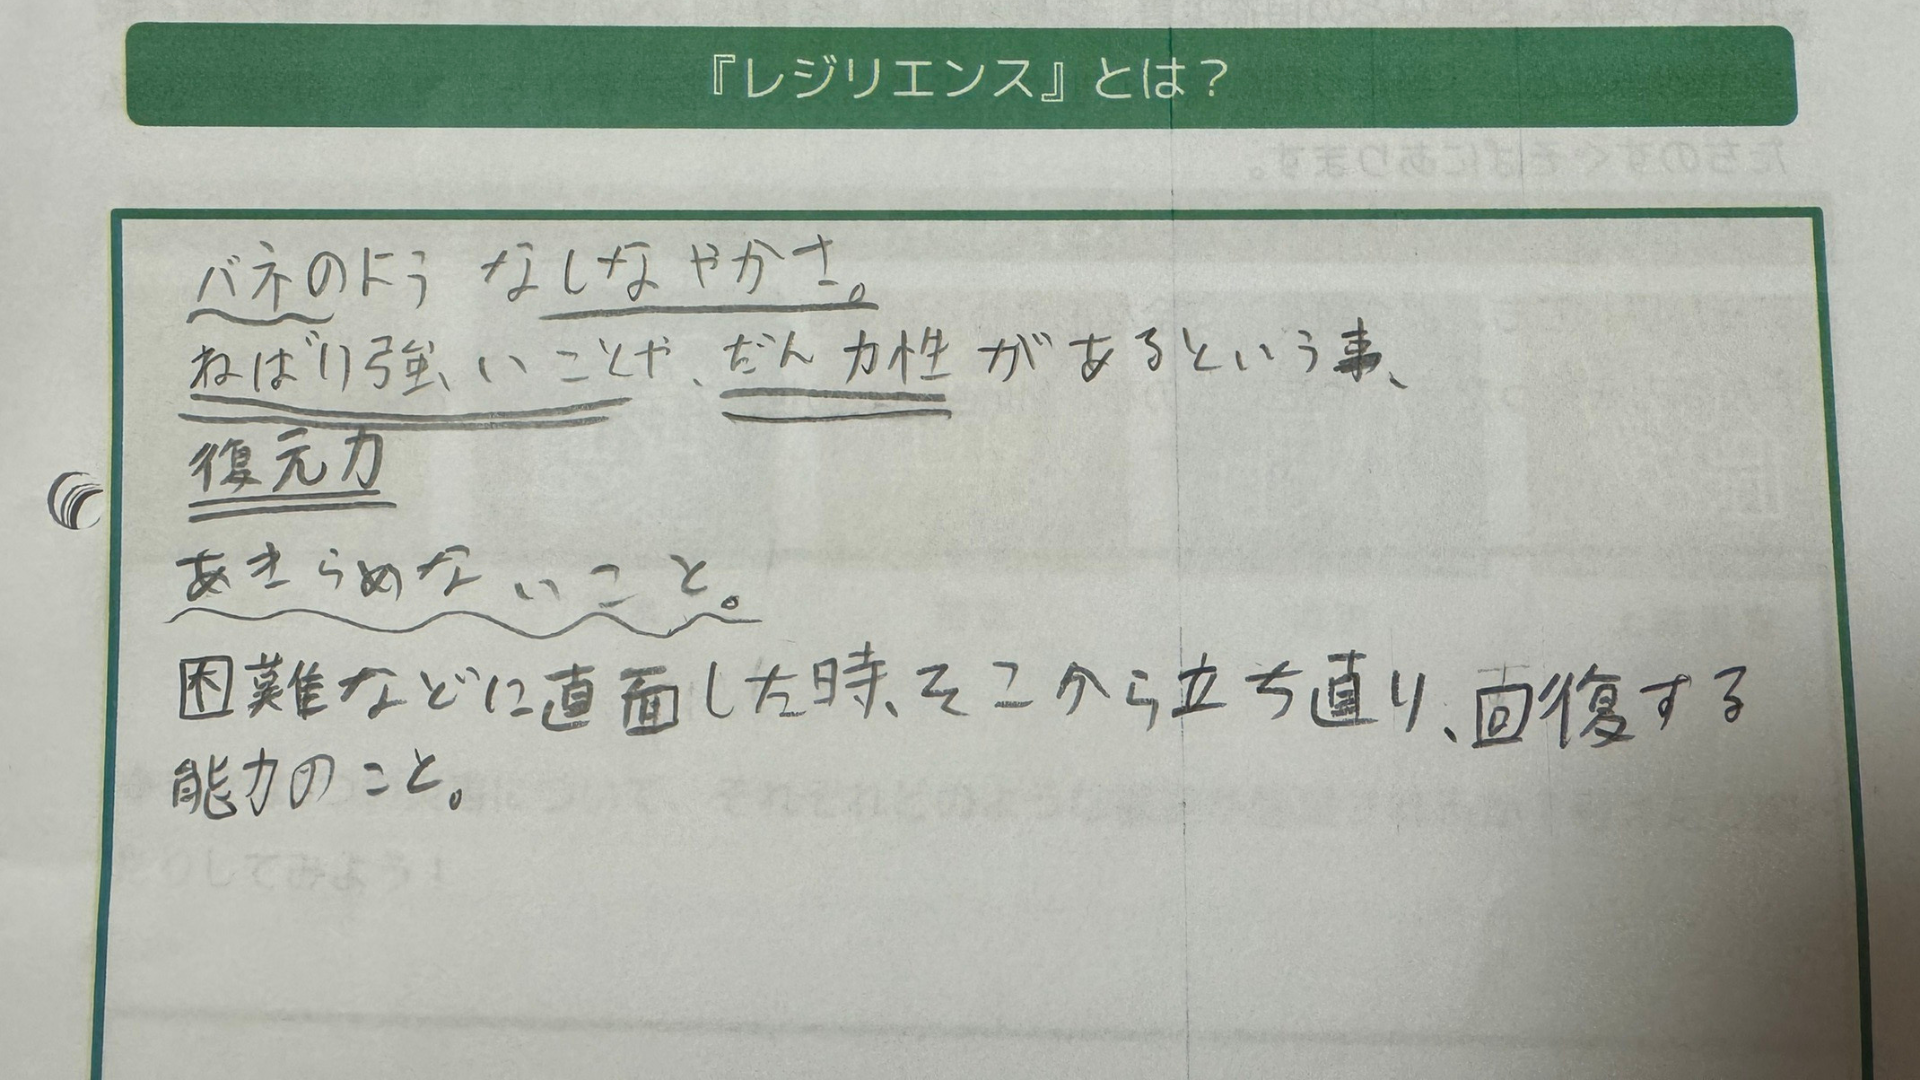 『レジリエンス』とは？
たちのすぐそばにあります。
バネのようなしなやかさ。
ねばり強いことや、だん力性があるという事、
復元力
あきらめないこと。
困難などに直面した時、そこから立ち直り、回復する
能力のこと。